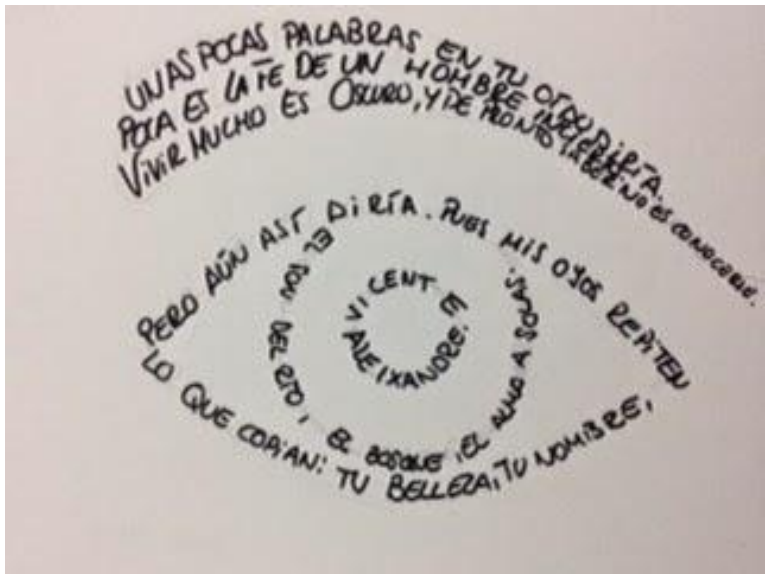 UNAS POCAS PALABRAS EN TU OÍDO DIRÍA.
POCA ES LA FE DE UN HOMBRE INCIERTO.
VIVIR MUCHO ES OSCURO, Y DE PRONTO SABER NO ES CONOCERSE.
PERO AÚN ASÍ DIRÍA. PUES MIS OJOS REPITEN
LO QUE COPIAN: TU BELLEZA, TU NOMBRE,
EL SON DEL RÍO, EL BOSQUE, EL ALMA A SOLAS.
VICENTE
ALEIXANDRE.